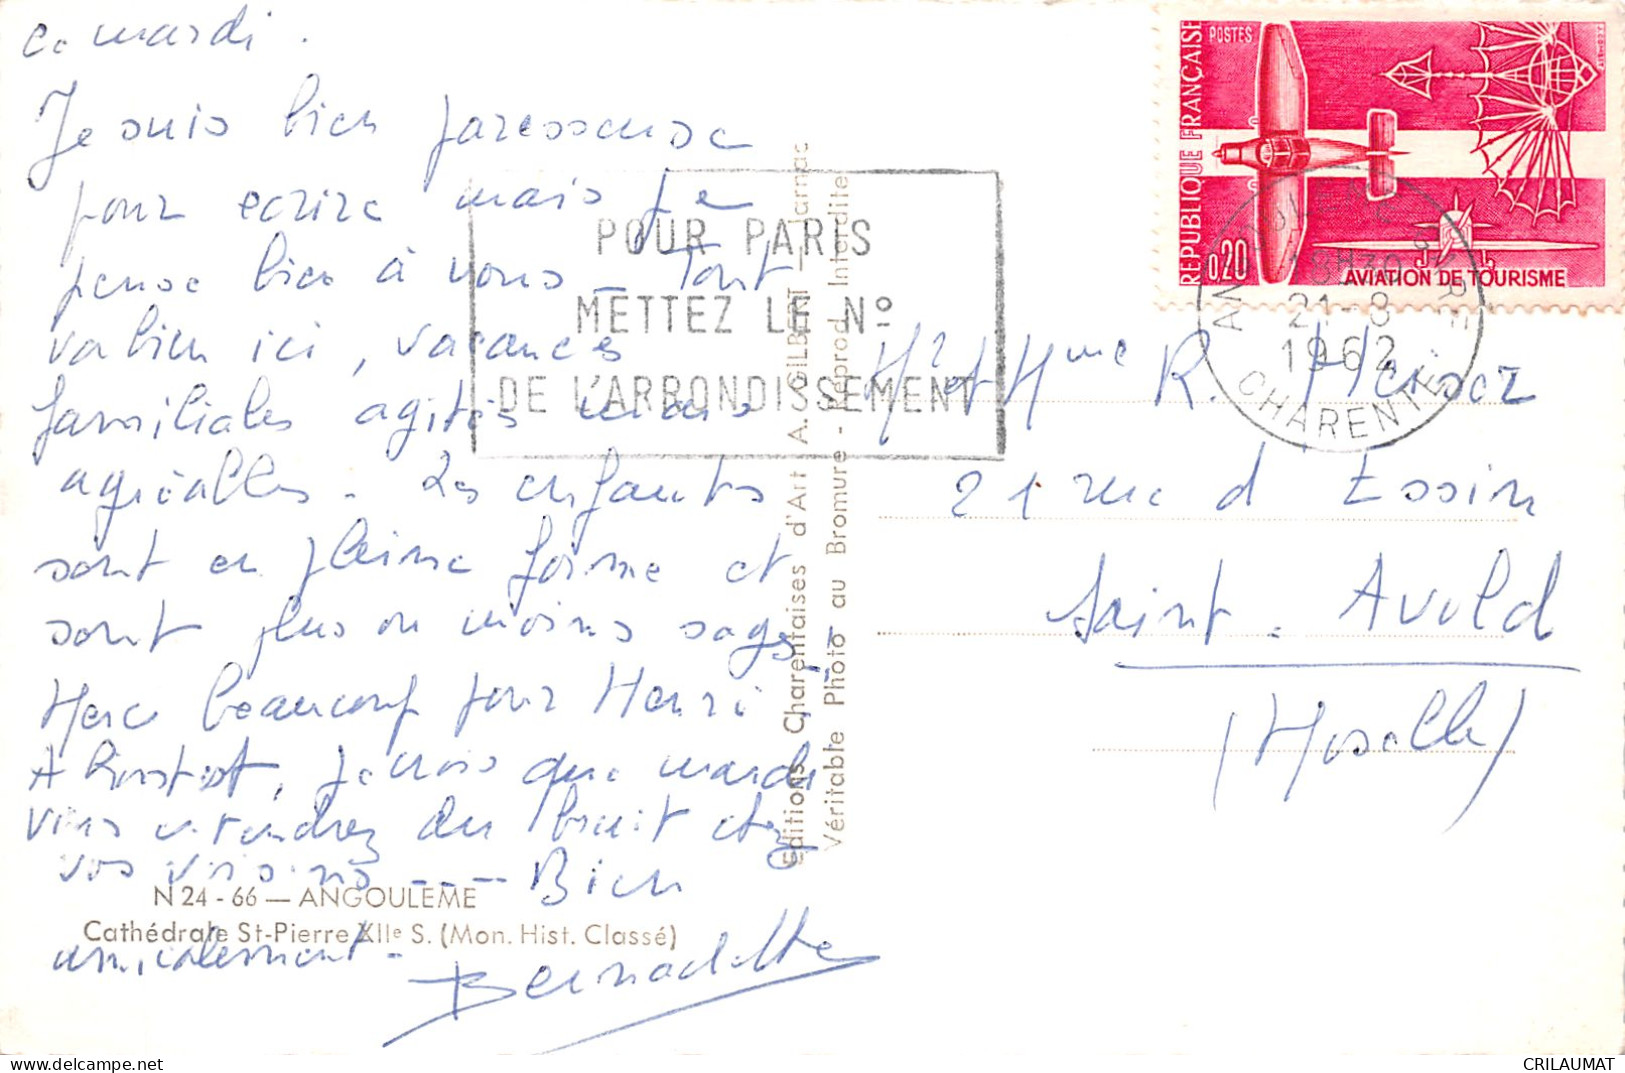 ce mardi.
Je suis bien paresseuse
pour ecrire mais je
pense bien à vous - Tout
va bien ici, vacances
familiales agités mais
agréables - Les enfants
sont en pleine forme et
sont plus ou moins sages -
Merci beaucoup pour Henri
A bientôt, je crois que mardi
vous entendrez du bruit chez
vos voisins - - - - Bien
amicalement -
Bernadette
N 24 - 66 — ANGOULEME
Cathédrale St-Pierre XIIe S. (Mon. Hist. Classé)
Editions Charentaises d'Art A. GILBERT — Jarnac
Véritable Photo au Bromure - Reprod. Interdite
POUR PARIS
METTEZ LE No
DE L'ARRONDISSEMENT
REPUBLIQUE FRANÇAISE
POSTES
0,20
AVIATION DE TOURISME
ANGOULEME GARE
18H30
21-8
1962
CHARENTE
Mr et Mme R.
21 rue d
Saint-Avold
(Moselle)
mardi 15 décembre 2020
CRILAUMAT